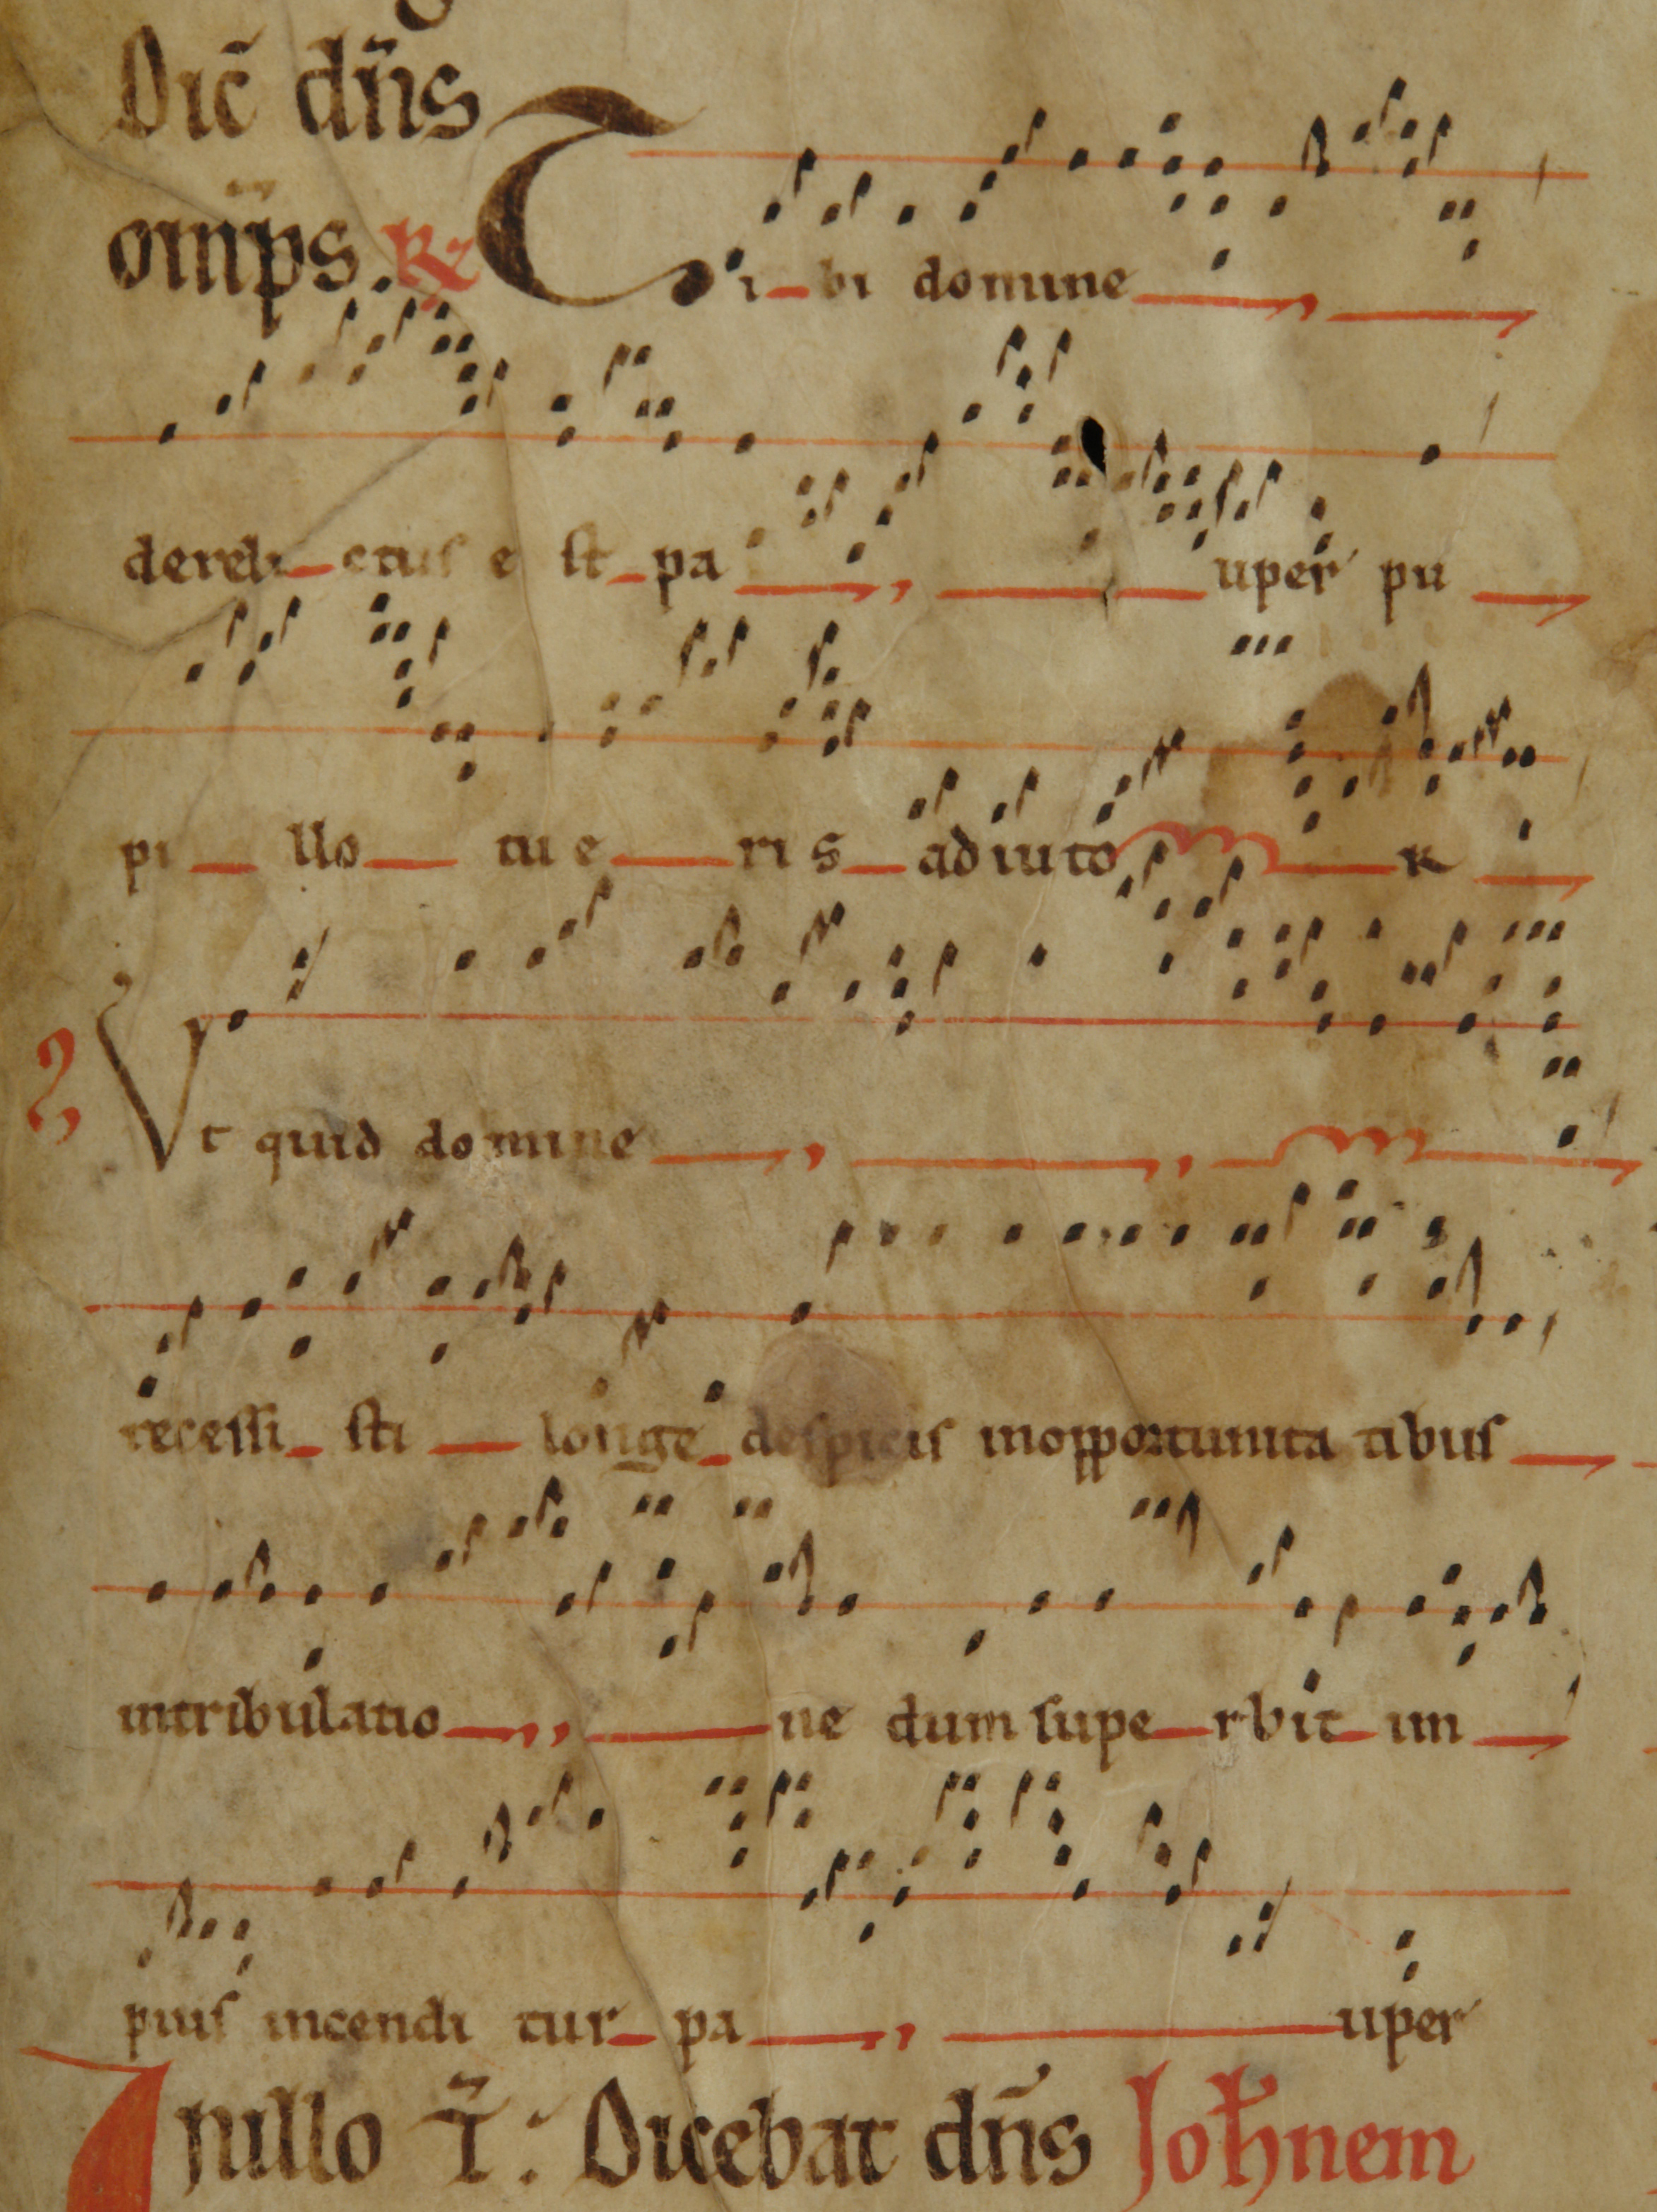 Dic̃ dñs
om̃ps. R̃
Tibi domine
derelictus est pa uper pu
pi llo tu eris adiuto R
Vt quid domine
recessi sti longe despicis inopportunita tibus
intribulatio ne dum supe rbit im
pius incendi tur pa uper
Inillo T̃: Dicebat dñs Johnem